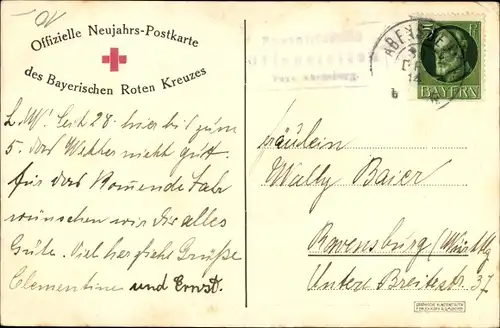 Offizielle Neujahrs-Postkarte
des Bayerischen Roten Kreuzes
BAYERN
L. W! Seit 28. hier bis zum
5. das Wetter nicht gut.
Für das Kommende Jahr
wünschen wir Dir alles
Gute. Viel herzliche Grüße
Clementine und Ernst.
Fräulein
Wally Baier
Ravensburg (Württbg
Untere Breitestr. 37